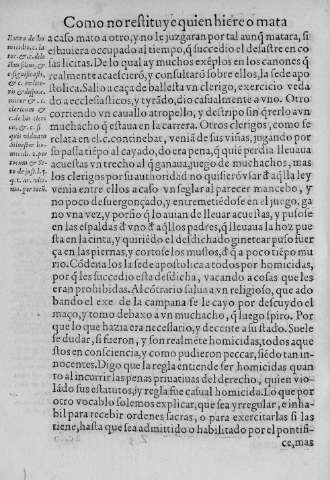 Como no restituye quien hiere o mata
a caso mato a otro, y no le juzgaran por tal aunq̃ matara, si
estuuiera occupado al tiempo, q̃ succedio el desastre en co
sas licitas. De lo qual ay muchos exẽplos en los canones q̃
realmente acaescierõ, y consultarõ sobre ellos, la sede apo
stolica. Salio a caça de ballesta vn clerigo, exercicio veda
do a ecclesiasticos, y tyrãdo, dio casualmente a vno. Otro
corriendo vn cauallo atropello, y destripo sin q̃rerlo a vn
muchacho q̃ estaua en la carrera. Otros clerigos, como se
relata en el. c. continebat, venia de sus viñas, jugando por
su passatiẽpo al cayado, do era pena, q̃ quiẽ perdia lleuaua
acuestas vn trecho al q̃ ganaua, juego de muchachos, mas
los clerigos por su authoridad no quisierõ vsar d̃ aq̃lla ley
venia entre ellos a caso vn seglar al parecer mancebo, y
no poco desuergonçado, y entremetiẽdose en el juego, ga
no vna vez, y porfio q̃ lo auian de lleuar acuestas, y pusose
en las espaldas d̃ vno d̃ aq̃llos padres, q̃ lleuaua la hoz pue
sta en la cinta, y quiriẽdo el del dichado ginetear puso fuer
ça en las piernas, y cortose los muslos, d̃ q̃ a poco tiẽpo mu
rio. Cõdena los la sede apostolica a todos por homicidas,
por q̃ les succedio esta desdicha, vacando a cosas que les
eran prohibidas. Al cõtrario salua a vn religioso, que ado
bando el exe de la campana se le cayo por descuydo el
maço, y tomo debaxo a vn muchacho, q̃ luego spiro. Por
que lo que hazia era necessario, y decente a su stado. Suele
se dudar, si fueron, y son realmẽte homicidas, todos aque
stos en consciencia, y como pudieron peccar, siẽdo tan in-
nocentes. Digo que la regla entiende ser homicidas quan
to al incurrir las penas priuatiuas del derecho, quien vio-
lãdo sus estatutos, y regla fue casual homicida. Lo que por
otro vocablo solemos explicar, que sea yrregular, e inha-
bil para recebir ordenes sacras, o para exercitarlas si las
tiene, hasta que sea admittido o habilitado por el pontifi-
ce, mas